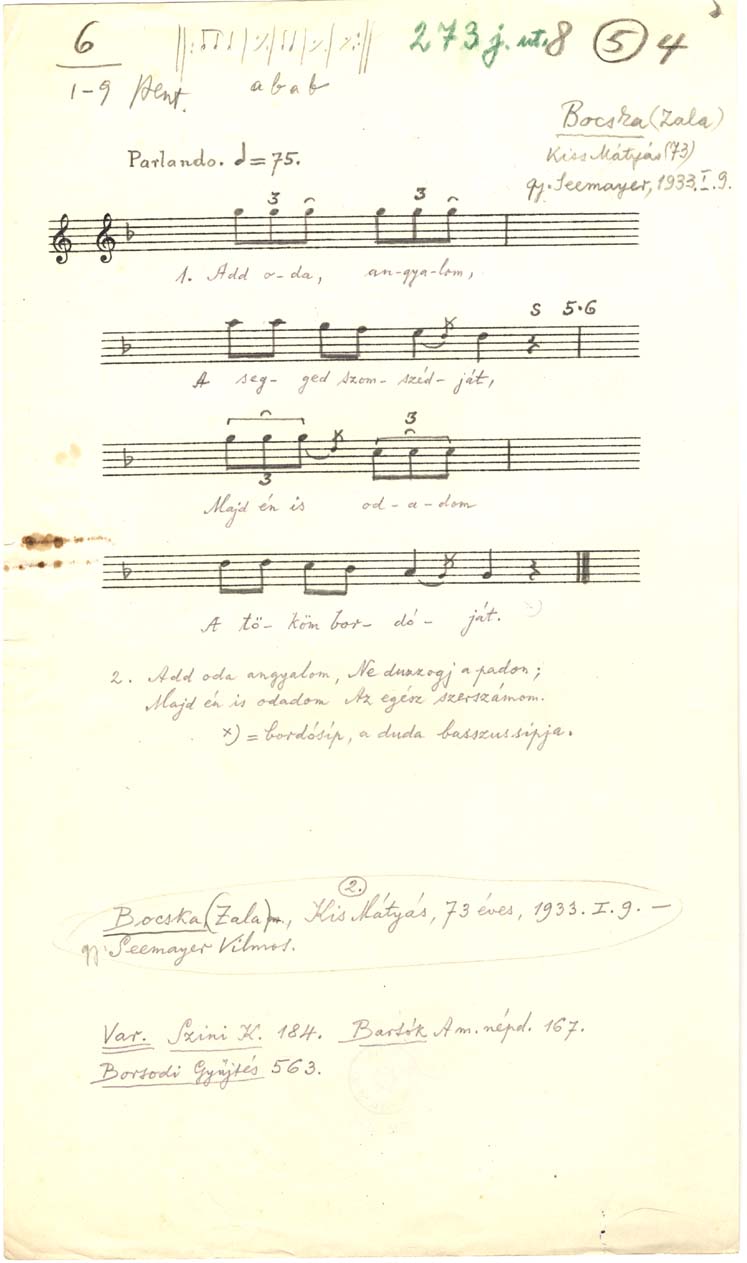 6 273 j. ut. 8 5 4
1-9 Pent. a b a b
Bocska (Zala)
Kiss Mátyás (73)
gy. Seemayer, 1933. I. 9.
Parlando. = 75.
3 3
1. Add o-da, an-gya-lom,
S 5·6
x
A seg- ged szom- széd- ját,
x 3
3
Majd én is od-a-dom
x
A tö- köm bor- dó- ját.
2. Add oda angyalom, Ne duzzogj a padon;
Majd én is odadom Az egész szerszámom.
x) = bordósíp, a duda basszussípja.
2.
Bocska (Zala), Kis Mátyás, 73 éves, 1933. I. 9. —
gy. Seemayer Vilmos.
Var. Szini K. 184. Bartók A m. népd. 167.
Borsodi Gyűjtés 563.